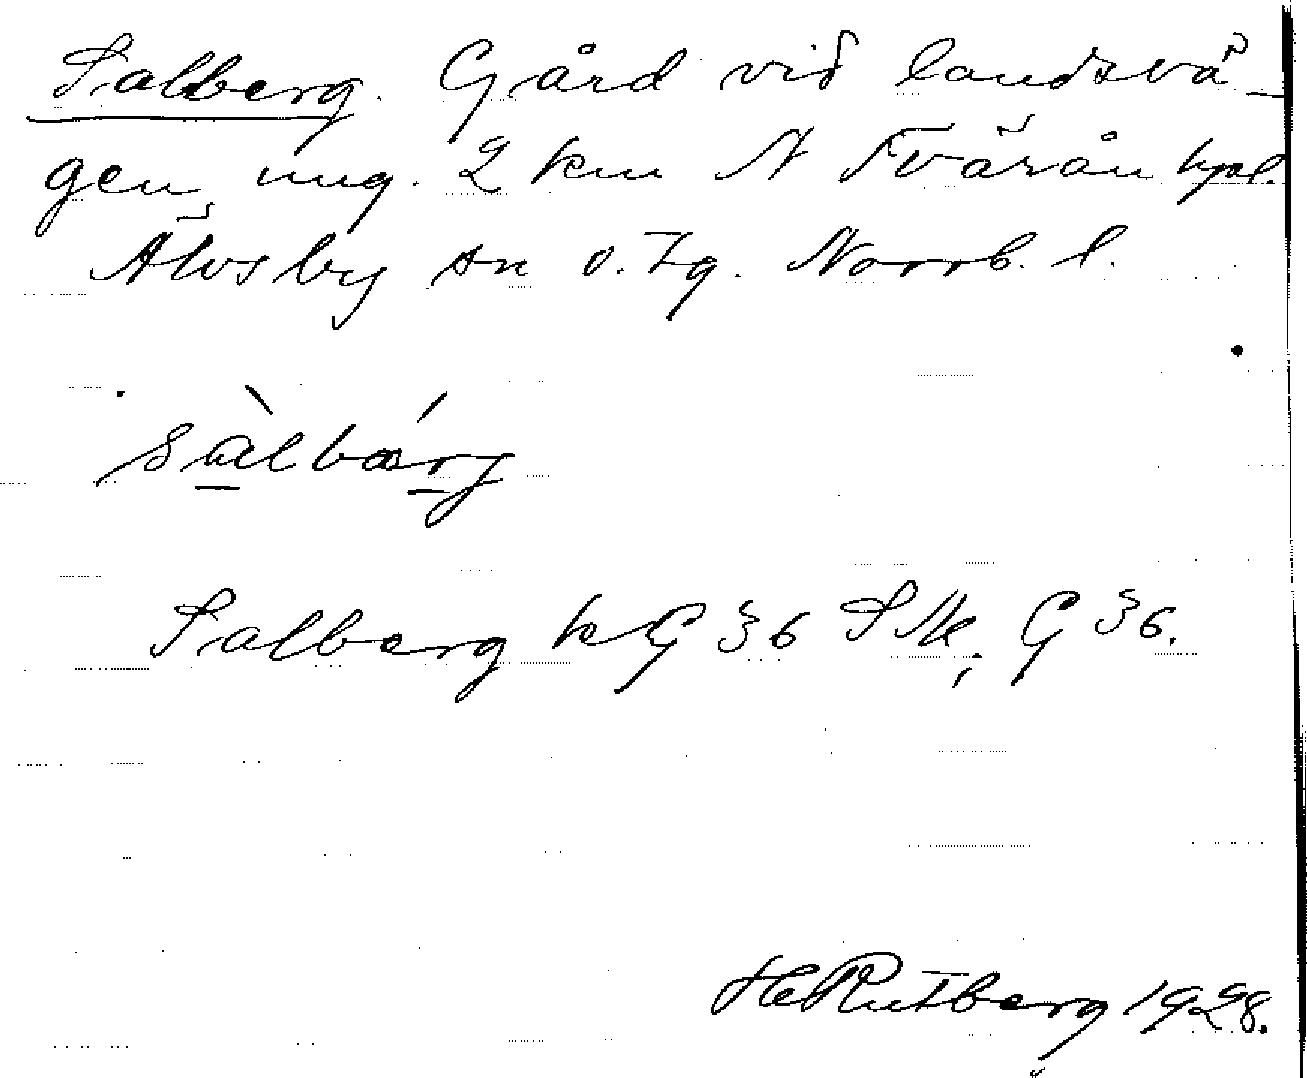 Salberg. Gård vid landsvä-
gen ung. 2 km N Tvärån hpl.
Älvsby sn o. tg. Norrb. l.
sàlbárj
Salberg kG § 6 SMk; G § 6.
HRutberg 1928.